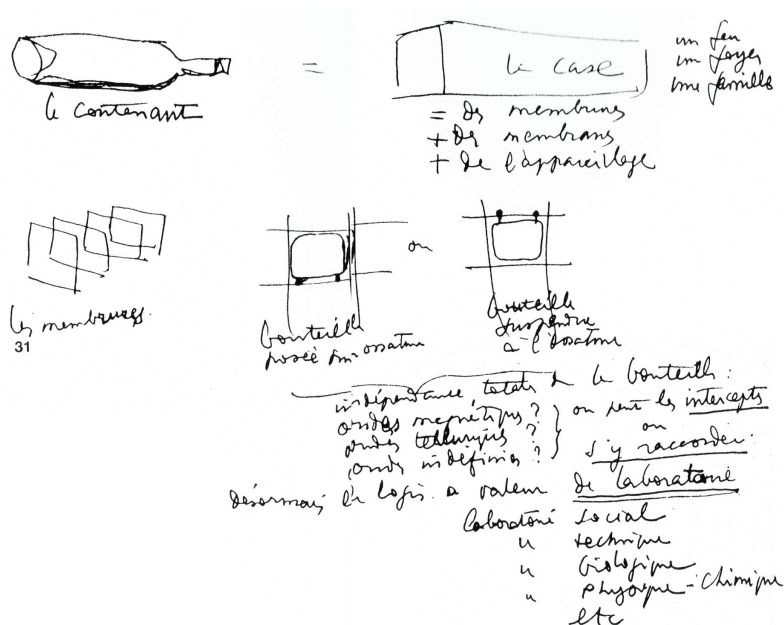 le contenant
=
la case
un feu
un foyer
une famille
= des membrures
+ des membranes
+ de l'appareillage
les membrures.
31
bouteille
posée sur ossature
ou
bouteille
suspendue
à l'ossature
indépendance totale de la bouteille :
ondes magnétiques ?
ondes telluriques ?
ondes indéfinies ?
on peut les intercepter
ou
s'y raccorder.
désormais le logis a valeur de laboratoire
laboratoire social
" technique
" biologique
" physique-chimique
etc